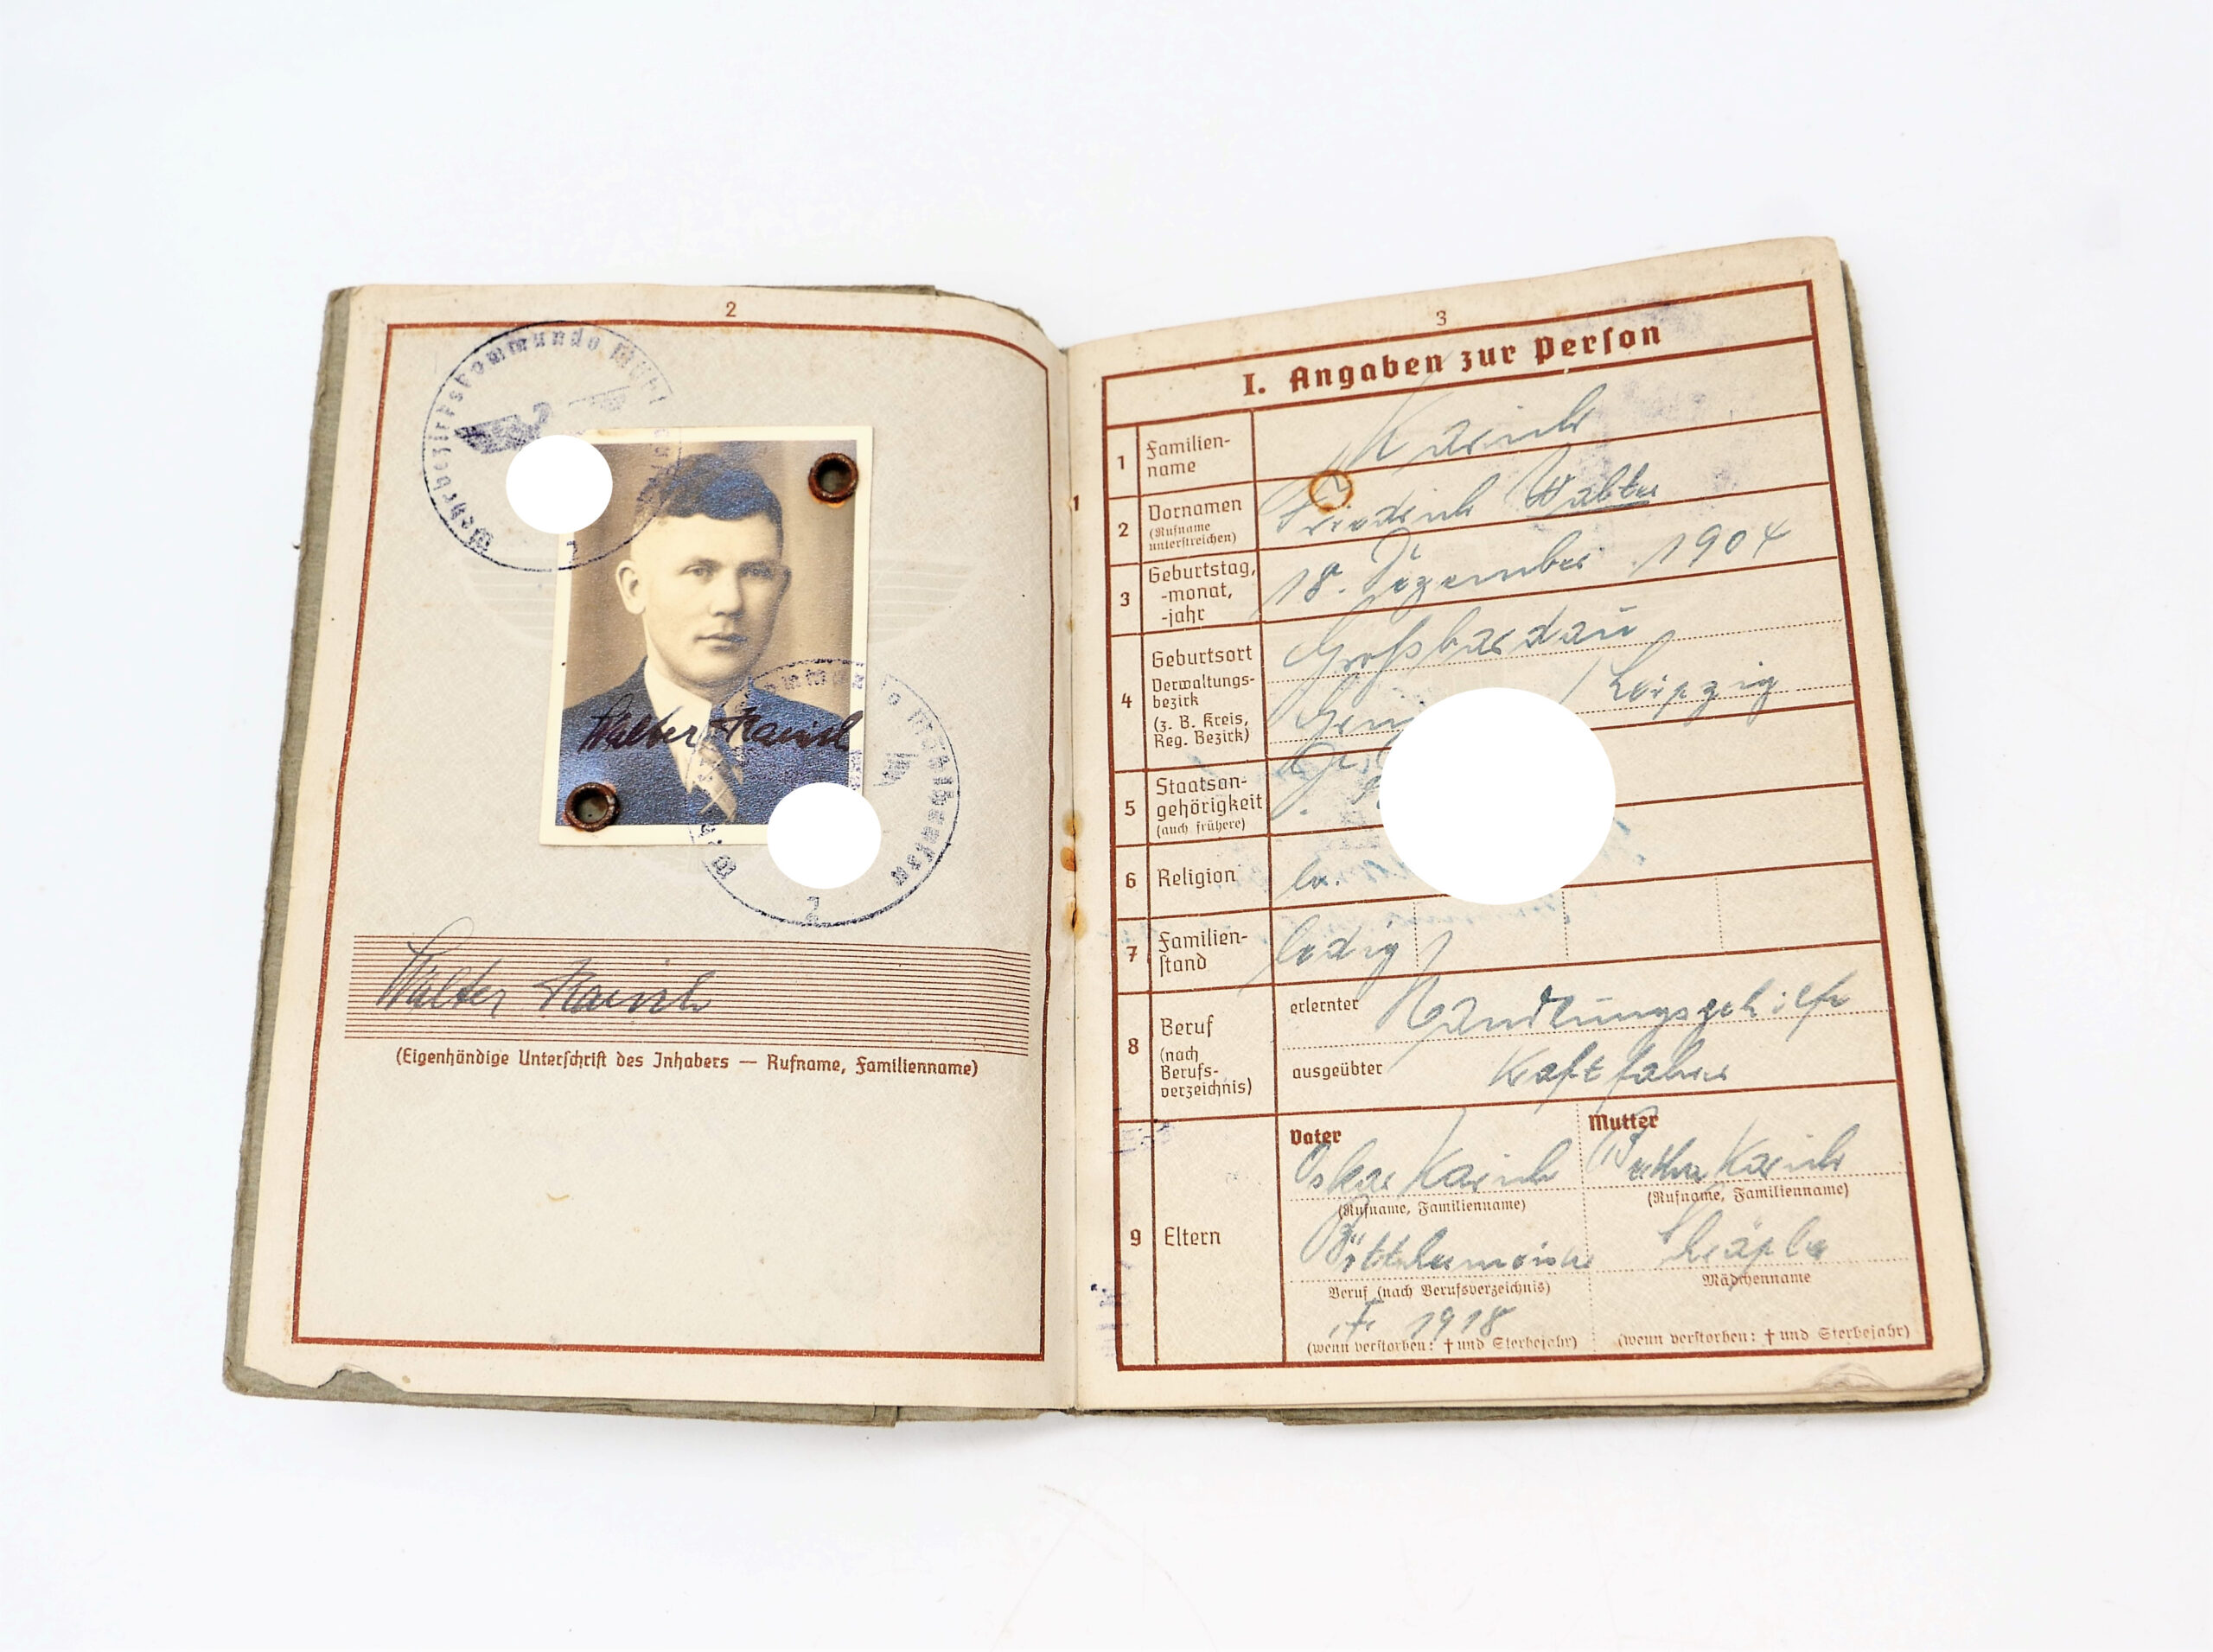 2
Wehrbezirkskommando Mühl
2
Walter
2
Walter
(Eigenhändige Unterschrift des Inhabers — Rufname, Familienname)
3
I. Angaben zur Person
1
1 Familien-
name
2 Vornamen
(Rufname
unterstreichen)
Friedrich Walter
3 Geburtstag,
-monat,
-jahr
18. Dezember 1904
4 Geburtsort
Großbardau
Verwaltungs-
bezirk
(z. B. Kreis,
Reg. Bezirk)
Leipzig
5 Staatsan-
gehörigkeit
(auch frühere)
6 Religion
ev.
7 Familien-
stand
ledig
8 Beruf
(nach
Berufs-
verzeichnis)
erlernter Handlungsgehilfe
ausgeübter Kraftfahrer
9 Eltern
Vater Mutter
Oskar
(Rufname, Familienname) (Rufname, Familienname)
Böttchermeister
Beruf (nach Berufsverzeichnis) Mädchenname
† 1918
(wenn verstorben: † und Sterbejahr) (wenn verstorben: † und Sterbejahr)